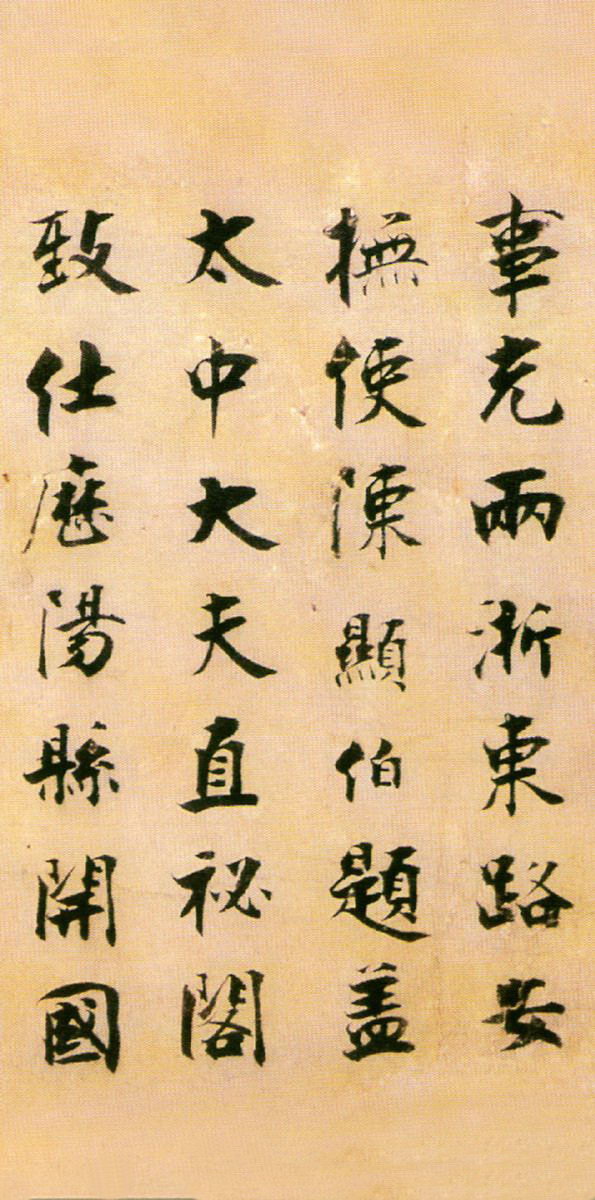 事充兩浙東路安
撫使陳顯伯題蓋
太中大夫直祕閣
致仕歷陽縣開國